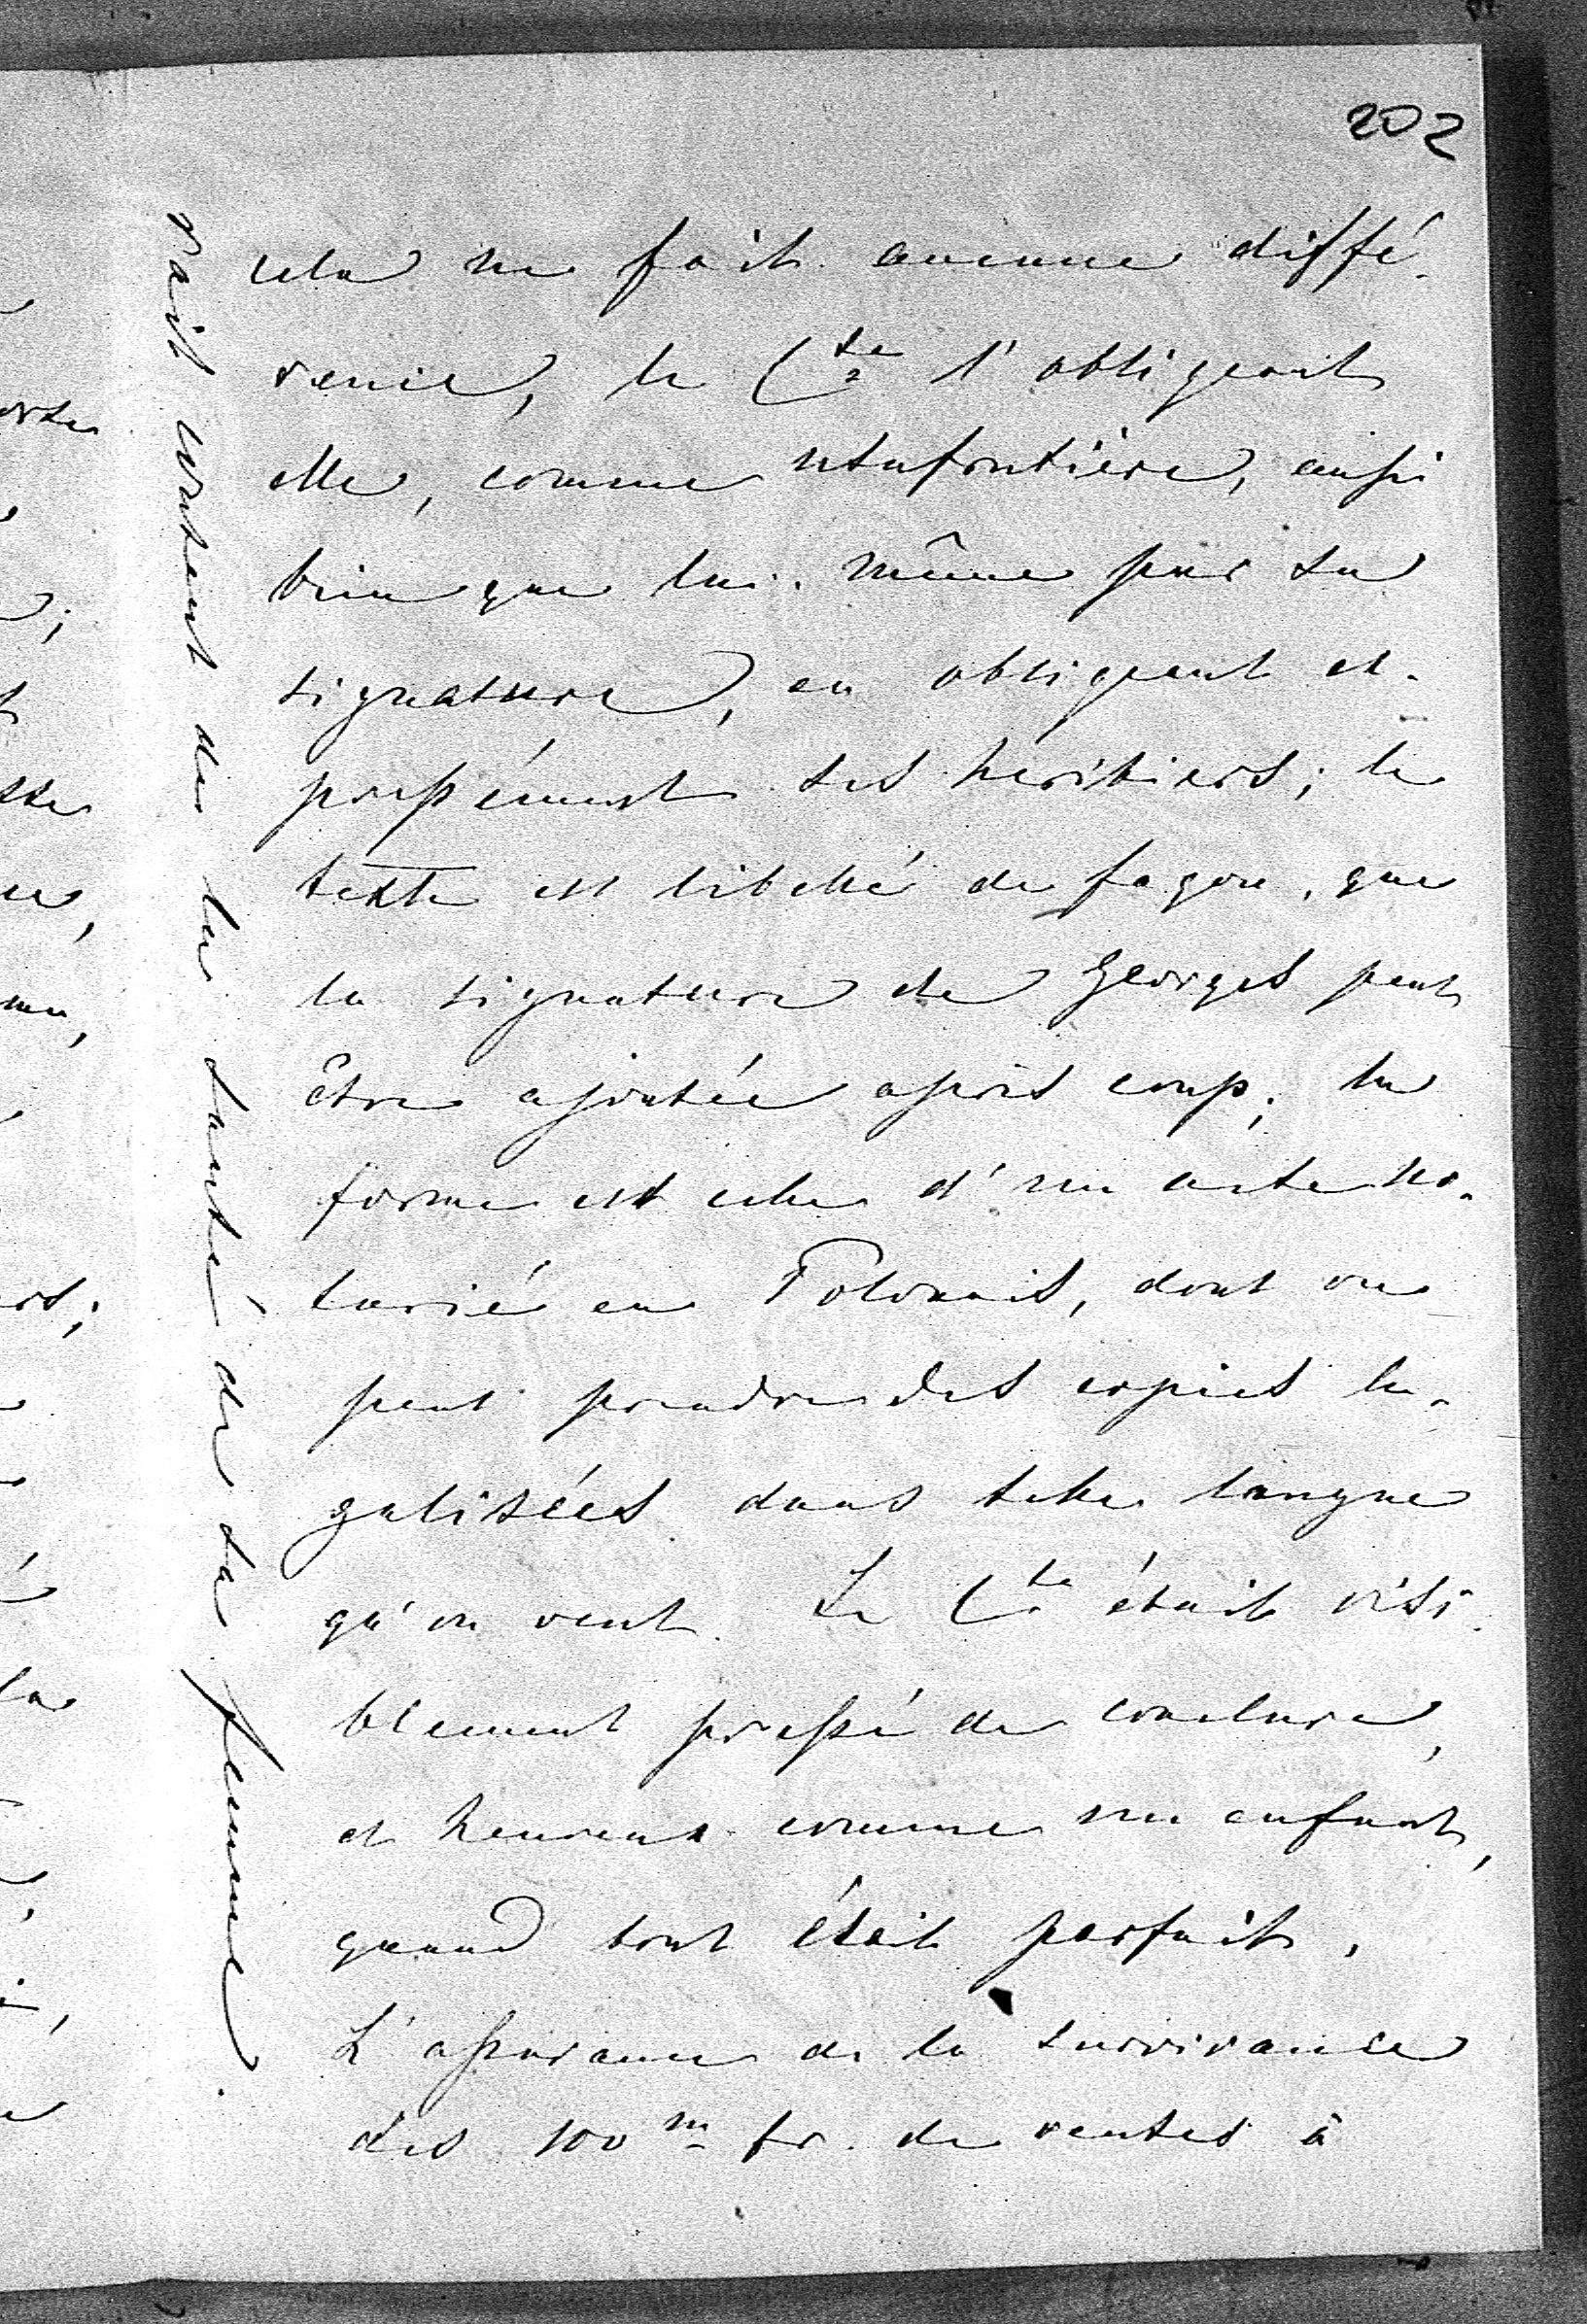 202
cela ne fait aucune diffé-
rence, le Cte l'obligeant
elle, comme usufruitière, aussi
bien que lui-même par sa
signature, en obligeant ex-
pressément ses heritiers; le
texte est libellé de façon, que
la signature de Georges peut
être ajoutée après coup; la
forme est celle d'un acte no-
tarié en Polonais, dont on
peut prendre des copies lé-
galisées dans telle langue
qu'on veut. Le Cte était visi-
blement pressé de conclure,
et heureux comme un enfant,
quand tout était parfait.
L'assurance de la survivance
des 100 m fr. de rentes à
rait content de la santé de sa femme.